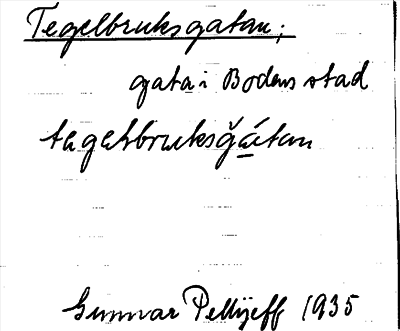 Tegelbruksgatan;
gata i Bodens stad
tegelbruksgǎ́tan
Gunnar Pellijeff 1935